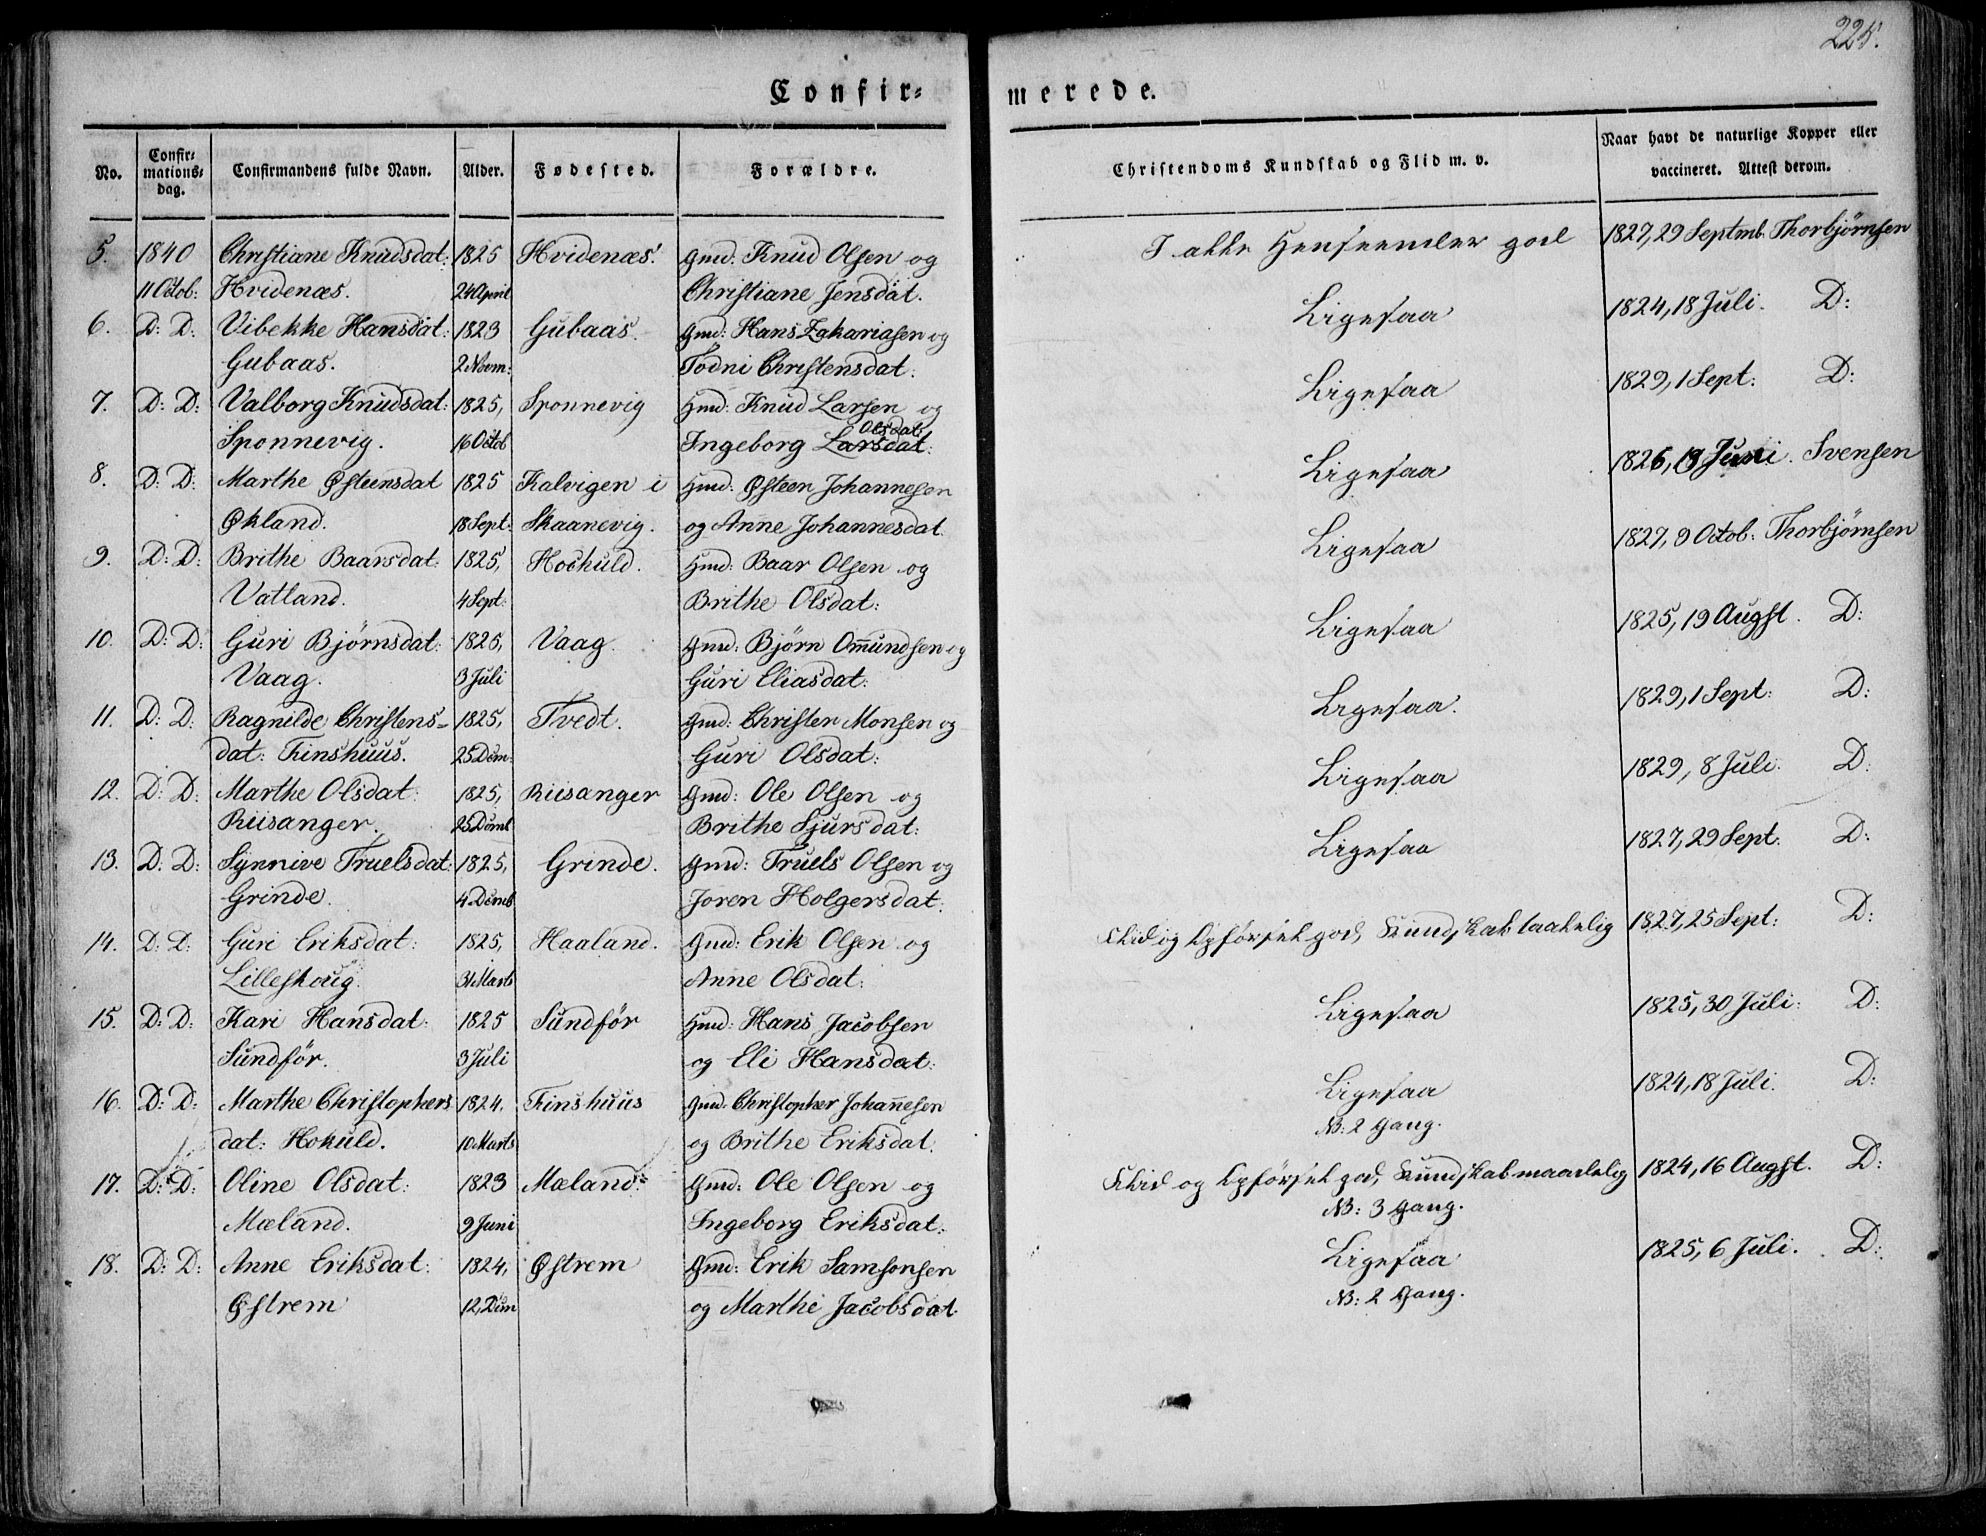 225.
Confir- merede.
No. Confir-mations-dag. Confirmandens fulde Navn. Alder. Fødested. Forældre. Christendoms Kundskab og Flid m. v. Naar havt de naturlige Kopper eller vaccineret. Attest derom.
5. 1840 Christiane Knudsdat: 1825 Hvidenæs. Gmd: Knud Olsen og I alle Henseender god 1827, 29 Septmb. Thorbjørnsen
11 Octob: Hvidenæs. 24 April Christiane Jensdat.
6. D: D: Vibekke Hansdat: 1823 Gubaas. Gmd: Hans Zakariasen og Ligesaa 1824, 18 Juli. D:
Gubaas. 2 Novm: Todni Christensdat:
7. D: D: Valborg Knudsdat: 1825, Sponnevig Hmd: Knud Larsen og Ligesaa 1829, 1 Sept: D:
Olsdat:
Sponnevig. 16 Octob Ingeborg Larsdat:
8. D: D: Marthe Østeensdat 1825 Kalvigen i Hmd: Østeen Johannesen Ligesaa 1826, Juni. Svensen
Økland. 18 Sept: Skaanevig. og Anne Johannesdat.
9. D: D: Brithe Baarsdat: 1825, Hoskuld. Hmd: Baar Olsen og Ligesaa 1827, 9 Octob: Thorbjørnsen
Vatland. 4 Sept: Brithe Olsdat:
10. D: D: Guri Bjørnsdat: 1825, Vaag. Gmd: Bjørn Ommundsen og Ligesaa 1825, 19 Augst. D:
Vaag. 3 Juli Guri Eliasdat:
11. D: D: Ragnilde Christens- 1825, Tvedt. Gmd: Christen Monsen og Ligesaa. 1829, 1 Sept: D:
dat: Finshuus. 25 Dcm: Guri Olsdat:
12. D: D: Marthe Olsdat: 1825, Riisanger Gmd: Ole Olsen og Ligesaa 1829, 8 Juli. D:
Riisanger. 25 Dcmb Brithe Sjursdat:
13. D: D: Synnive Truelsdat: 1825, Grinde. Gmd: Truels Olsen og Ligesaa 1827, 29 Sept: D:
Grinde. 4 Dcmb Joren Holgersdat.
14. D: D: Guri Eriksdat: 1825, Haaland. Gmd: Erik Olsen og Flid og Opførsel god, Kundskab taalelig 1827, 25 Sept: D:
Lilleskoug. 31 Marts Anne Olsdat:
15. D: D: Kari Hansdat: 1825 Sundfør Hmd: Hans Jacobsen Ligesaa 1825, 30 Juli: D:
Sundfør. 3 Juli og Eli Hansdat:
16. D: D: Marthe Christophers 1824, Finshuus Gmd: Christopher Johannesen Ligesaa 1824, 18 Juli. D:
dat: Hokuld. 10 Marts og Brithe Eriksdat. NB: 2 Gang.
17. D: D: Oline Olsdat: 1823 Mæland: Gmd: Ole Olsen og Flid og Opførsel god, Kundskab maadelig 1824, 16 Augst. D:
Mæland. 9 Juni Ingeborg Eriksdat: NB: 3 Gang.
18. D: D: Anne Eriksdat: 1824, Østrem Gmd: Erik Samsonsen Ligesaa 1825, 6 Juli. D:
Østrem 12, Dcm og Marthe Jacobsdat NB: 2 Gang.